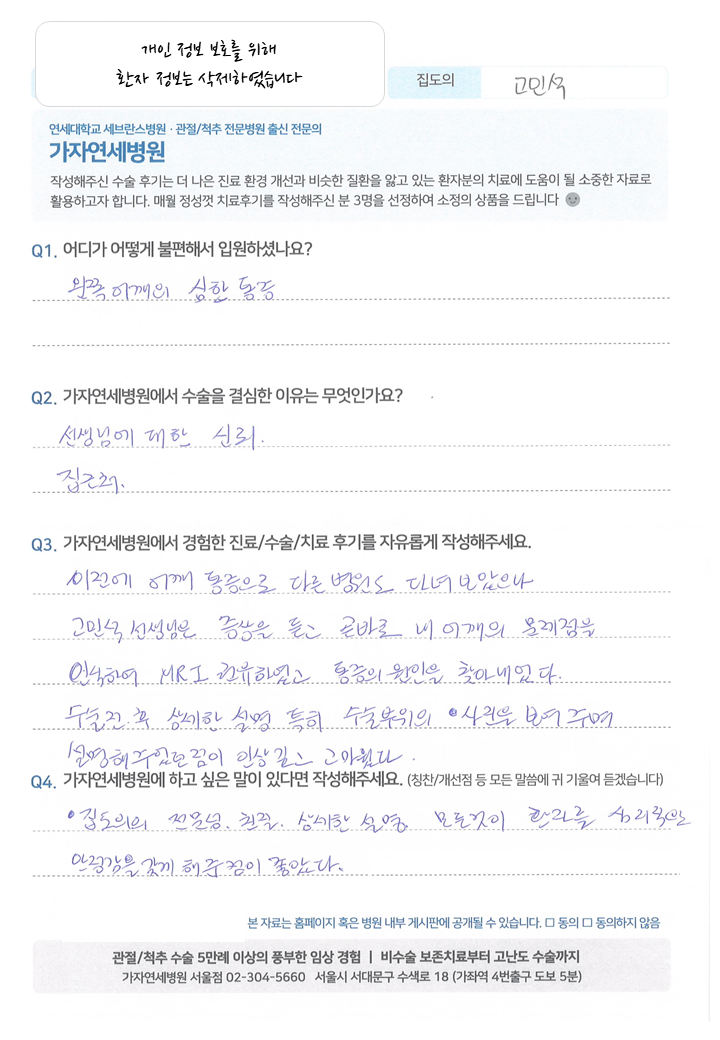 개인 정보 보호를 위해
환자 정보는 삭제하였습니다
집도의 고민석
연세대학교 세브란스병원 · 관절/척추 전문병원 출신 전문의
가자연세병원
작성해주신 수술 후기는 더 나은 진료 환경 개선과 비슷한 질환을 앓고 있는 환자분의 치료에 도움이 될 소중한 자료로
활용하고자 합니다. 매월 정성껏 치료후기를 작성해주신 분 3명을 선정하여 소정의 상품을 드립니다
Q1. 어디가 어떻게 불편해서 입원하셨나요?
왼쪽어깨의 심한 통증
Q2. 가자연세병원에서 수술을 결심한 이유는 무엇인가요?
선생님에 대한 신뢰.
집근처.
Q3. 가자연세병원에서 경험한 진료/수술/치료 후기를 자유롭게 작성해주세요.
이전에 어깨 통증으로 다른 병원도 다녀 보았으나
고민석 선생님은 증상을 듣고 곧바로 내 어깨의 문제점을
인식하여 MRI 권유하였고 통증의 원인을 찾아내었다.
수술전.후 상세한 설명 특히 수술부위의 사진을 보여 주며
설명해주었던 점이 인상 깊고 고마웠다.
Q4. 가자연세병원에 하고 싶은 말이 있다면 작성해주세요. (칭찬/개선점 등 모든 말씀에 귀 기울여 듣겠습니다)
집도의의 전문성. 친절. 상세한 설명 모든것이 환자를
안정감을 갖게 해준점이 좋았다.
본 자료는 홈페이지 혹은 병원 내부 게시판에 공개될 수 있습니다. □ 동의 □ 동의하지 않음
관절/척추 수술 5만례 이상의 풍부한 임상 경험 | 비수술 보존치료부터 고난도 수술까지
가자연세병원 서울점 02-304-5660 서울시 서대문구 수색로 18 (가좌역 4번출구 도보 5분)